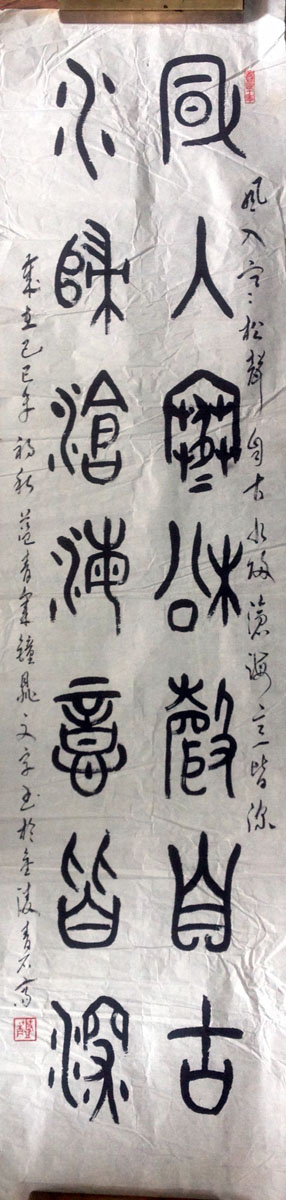 風入寒松聲自古水歸滄海意皆深
風入寒松聲自古
水歸滄海意皆深
歲在己巳年初秋鐘鼎文字書於金陵青石齋